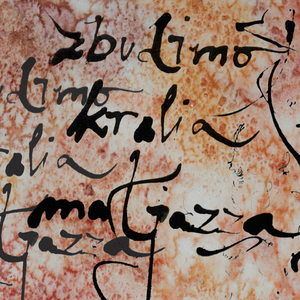 zbudimo
udimo
kralia
ralia
matjazza
jazza